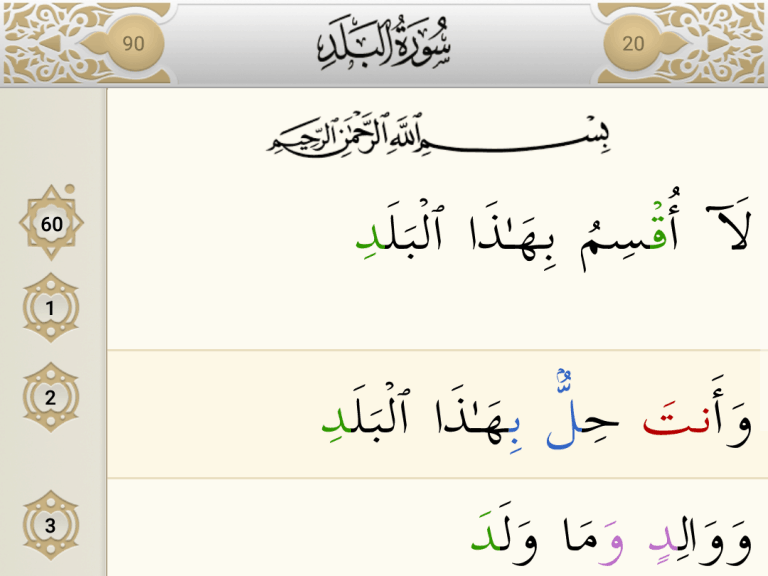 90 سُورَةُ الْبَلَدِ 20
بِسْمِ ٱللَّهِ ٱلرَّحْمَٰنِ ٱلرَّحِيمِ
60
1 لَآ أُقْسِمُ بِهَـٰذَا ٱلْبَلَدِ
2 وَأَنتَ حِلٌّۢ بِهَـٰذَا ٱلْبَلَدِ
3 وَوَالِدٍ وَمَا وَلَدَ